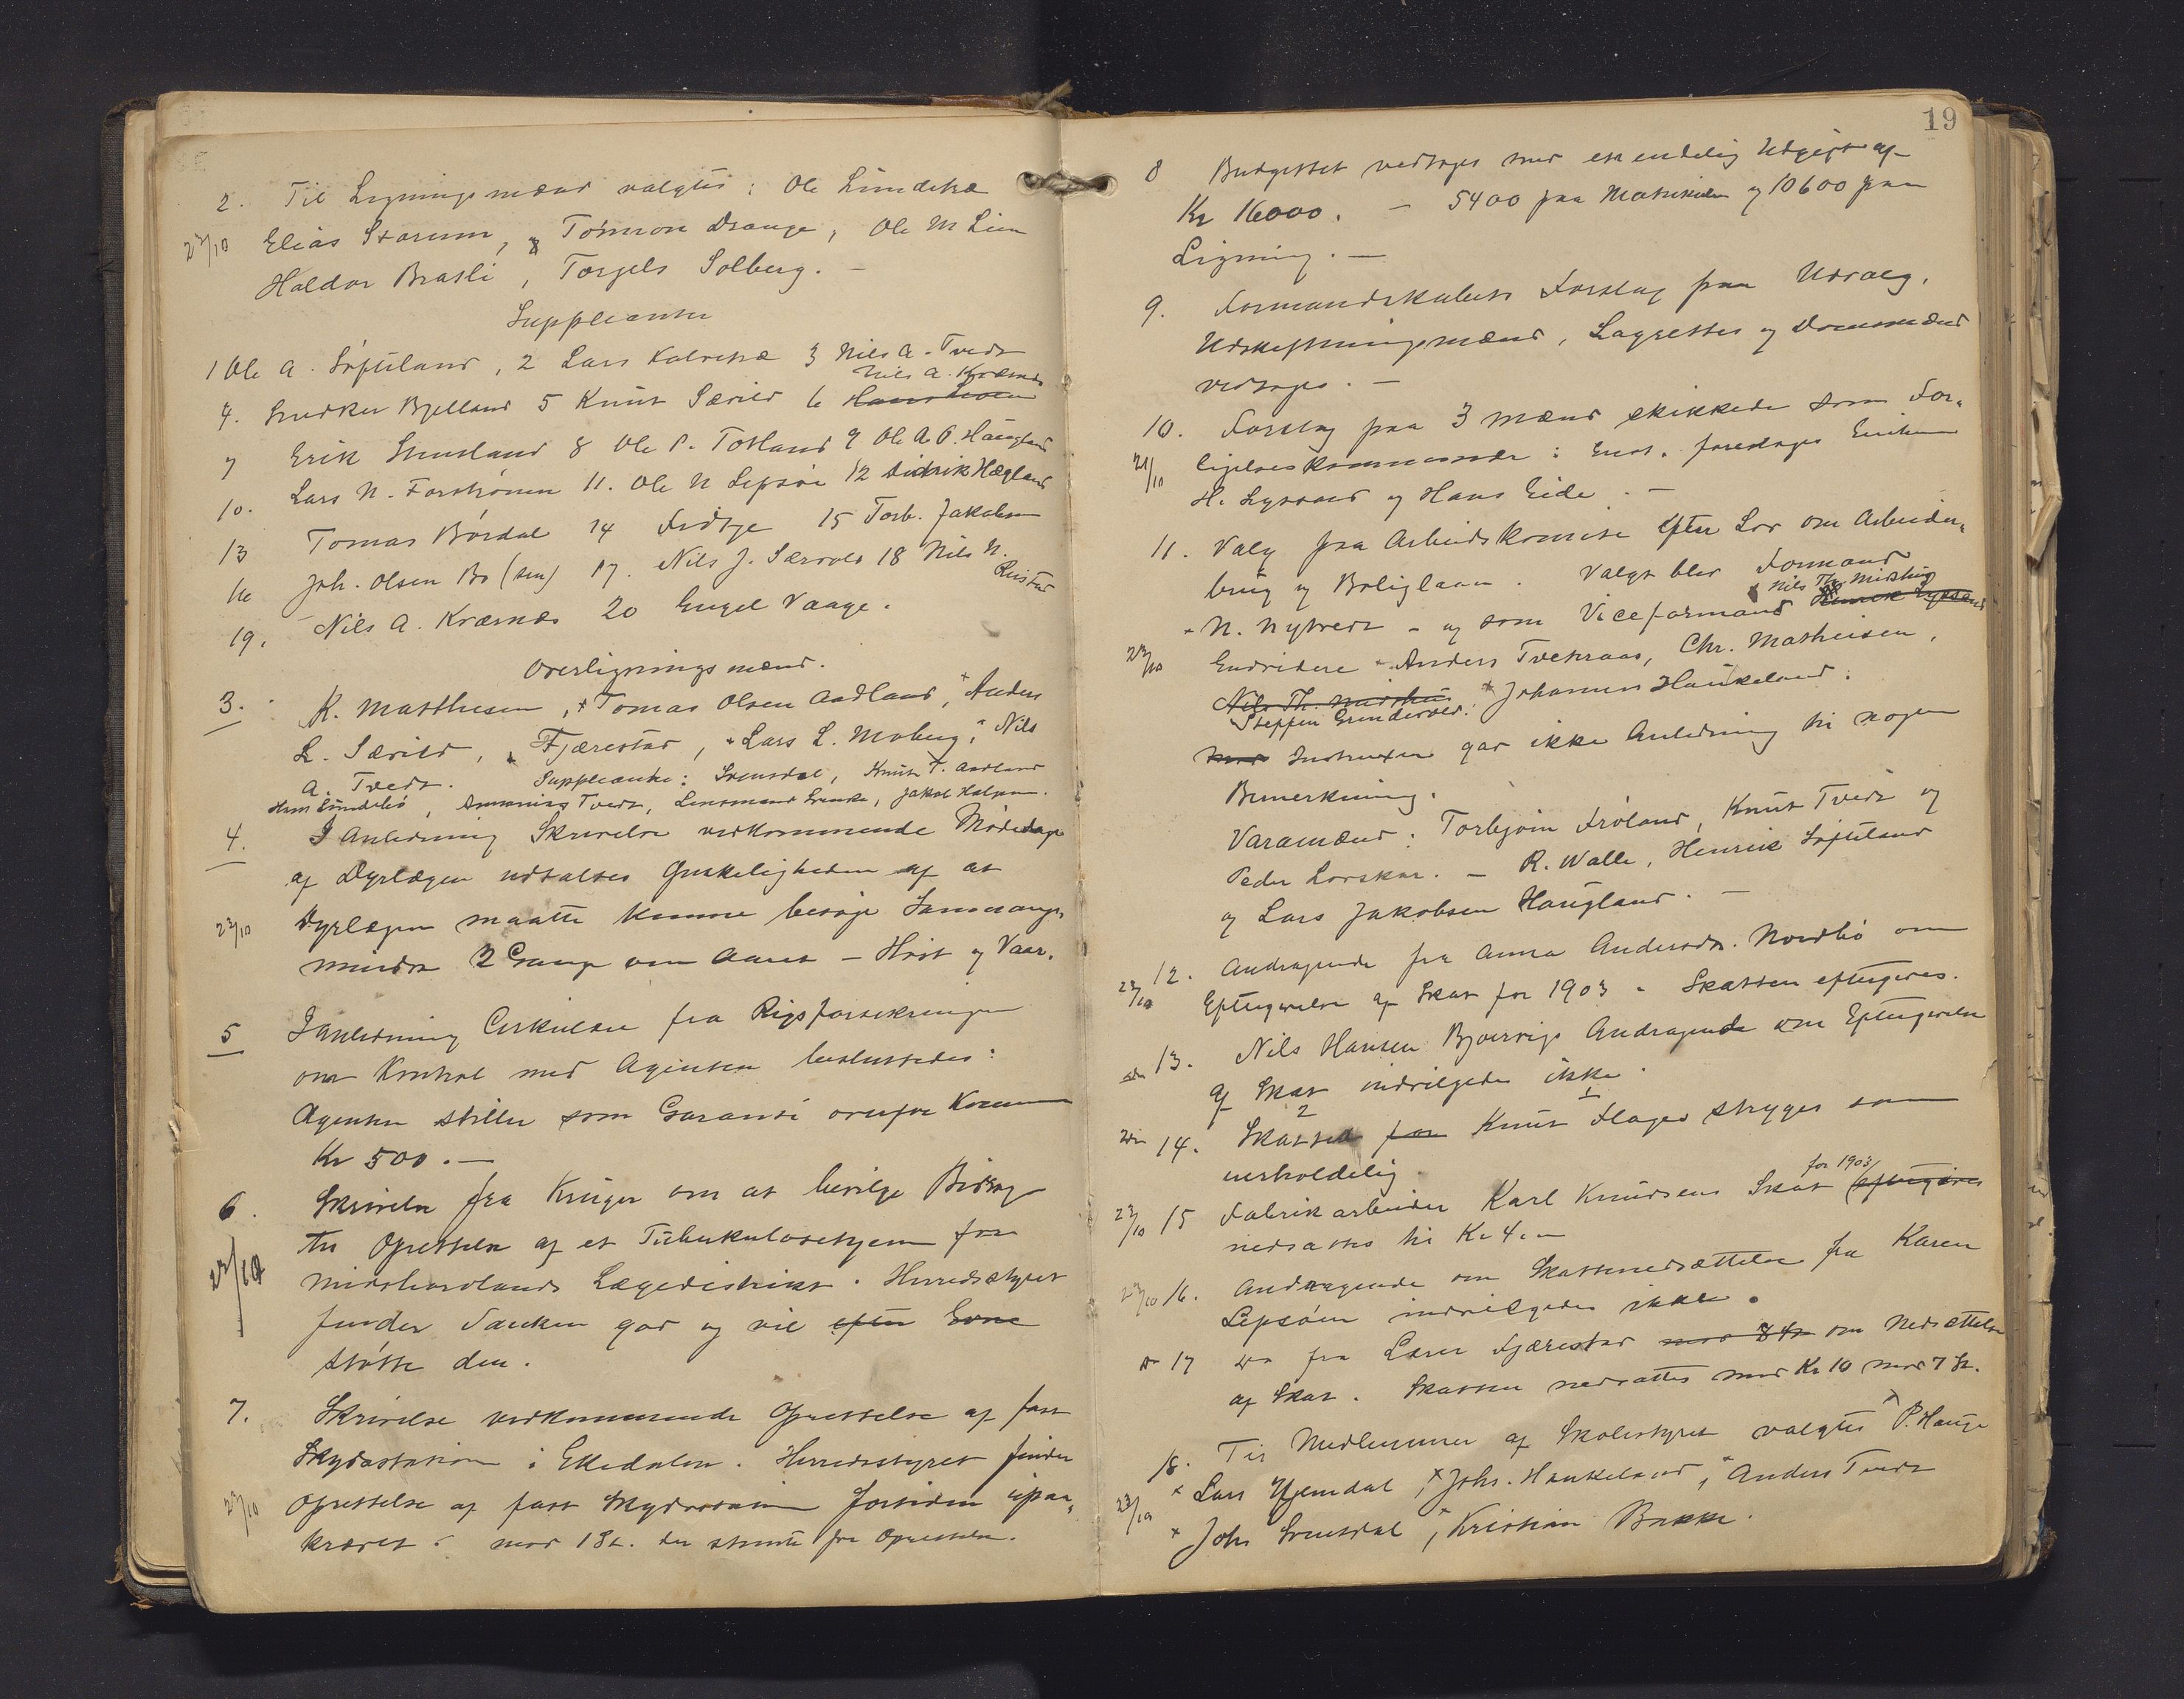 2. Til Ligningsmænd valgtes: Ole Lundetræ
23/10 Elias Skorum, Tømron Drange, Ole M Lien
Haldor Bratli, Torgels Solberg. –
Suppleanter
1 Ole A. Søfteland, 2 Lars Kalvetræ 3 Nils A. Tvedt
Nils A. Kværnæs
4. Sjurker Bjelland 5 Knut Særild 6
7 Erik Stusland 8 Ole P. Totland 9 Ole A O. Haugland
10. Lars N. Forstrønen 11. Ole N Lepsøe 12 Didrik Hegland
13 Tomas Børdal 14 Fidtje 15 Torb. Jakobsen
16 Joh. Olsen Bø (sen) 17. Nils J. Særvold 18 Nils N.
Røistad
19. Nils A. Kværnæs 20 Engel Vaage.
Overligningsmænd.
3. K. Matthiesen, Tomas Olsen Aadland, Anders
L. Særild, Fjærestad, Lars L. Moberg, Nils
A. Tvedt. Suppleanter: Svensdal, Knut T. Aadland
Hans Lundebø, Ammonias Tvedt, Lensmand Grenke, Jakob Halgjem.
4. I Anledning Skrivelse vedkommende Mødedage
af Dyrlægen udtaltes Ønskeligheden af at
23/10 Dyrlægen maatte kunne besøge Samnanger
mindst 2 Gange om Aaret – Høst og Vaar.
5 I Anledning Cirkulære fra Rigsforsikringen
om Kontrol med Agenten besluttedes:
Agenten stiller som Garanti overfor Kommunen
Kr 500. –
6. Skrivelse fra Krüger om at bevilge Bidrag
til Oprettelse af et Tuberkulosehjem for
23/10 Midthordlands Lægedistrikt. Herredsstyret
finder Tanken god og vil efter Evne
støtte den.
7. Skrivelse vedkommende Oprettelse af fast
Skydsstation i Ekedalen. Herredsstyret finder
23/10 Oprettelse af fast Skydsstation forsiden upaa-
krævet. mod 1 St. der stemte for Oprettelse.
19
8 Budgettet vedtages med en endelig Udgift af
Kr 16000. – 5400 paa Matrikulen og 10600 paa
Ligning. –
9. Formandskabets Forslag paa Udvalg,
Udskiftningsmænd, Lagrettes og Domsmænd
vedtages. –
10. Forslag paa 3 Mænd skikkede som For-
21/10 ligelseskommissær: Enst. foreslages
H. Lyssand og Hans Eide. –
11. Valg paa Arbeidskomite efter Lov om Arbeider-
brug og Boliglaan. Valgt blev Formand
Nils Th. Midthus
N. Nytvedt – og som Viceformand Henrik Lyssand
23/10 Endvidere Anders Tveteraas, Chr. Mathiesen,
Nils Th. Midthus Johannes Haukeland.
Steffen Grindevold.
mod Instruxen gav ikke Anledning til nogen
Bemerkning.
Varamænd: Torbjørn Frøland, Knut Tvedt og
Peder Lorskar. – R. Walle, Henrik Søfteland
og Lars Jakobsen Haugland. –
23/10 12. Andragende fra Anna Andersdr. Nordbø om
Eftergivelse af Skat for 1903. Skatten eftergives.
do 13. Nils Hansen Bjørvigs Andragende om Eftergivelse
af Skat indvilgedes ikke.
2 1
do 14. Skatten for Knut Flaged stryges som
uerholdelig
for 1903
23/10 15 Fabrikarbeider Karl Knudsens Skat eftergives
nedsattes til Kr 4. –
23/10 16. Andragende om Skattenedsættelse fra Karen
Lepsøen indvilgedes ikke.
do 17 do fra Lærer Fjærestad mod 3 St. om Nedsættelse
af Skat. Skatten nedsattes med Kr 10 mod 7 St.
18. Til Medlemmer af Skolestyret valgtes P. Hauge
23/10 Lars Hjemdal, Johs. Haukeland, Anders Tvedt
Johs Svensdal, Kristian Bakke.